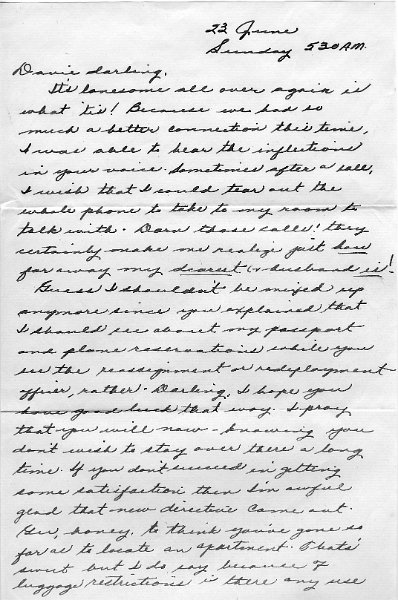 23 June
Sunday 530 A.M.
Davie darling,
It's lonesome all over again is
what 'tis! Because we had so
much a better connection this time,
I was able to hear the inflections
in your voice. Sometimes after a call,
I wish that I could tear out the
whole phone to take to my room to
talk with. Darn those calls! they
certainly make me realize just how
far away my dearest husband is!
Guess I shouldn't be mixed up
anymore since you explained that
I should see about my passport
and plane reservations while you
see the reassignment or redeployment
officer, rather. Darling, I hope you
have good luck that way. I pray
that you will now - knowing you
don't wish to stay over there a long
time. If you don't succeed in getting
some satisfaction then I'm awful
glad that new directive came out.
Gee, honey, to think you've gone so
far as to locate an apartment. Thats'
sweet but I do say because of
luggage restrictions is there any use